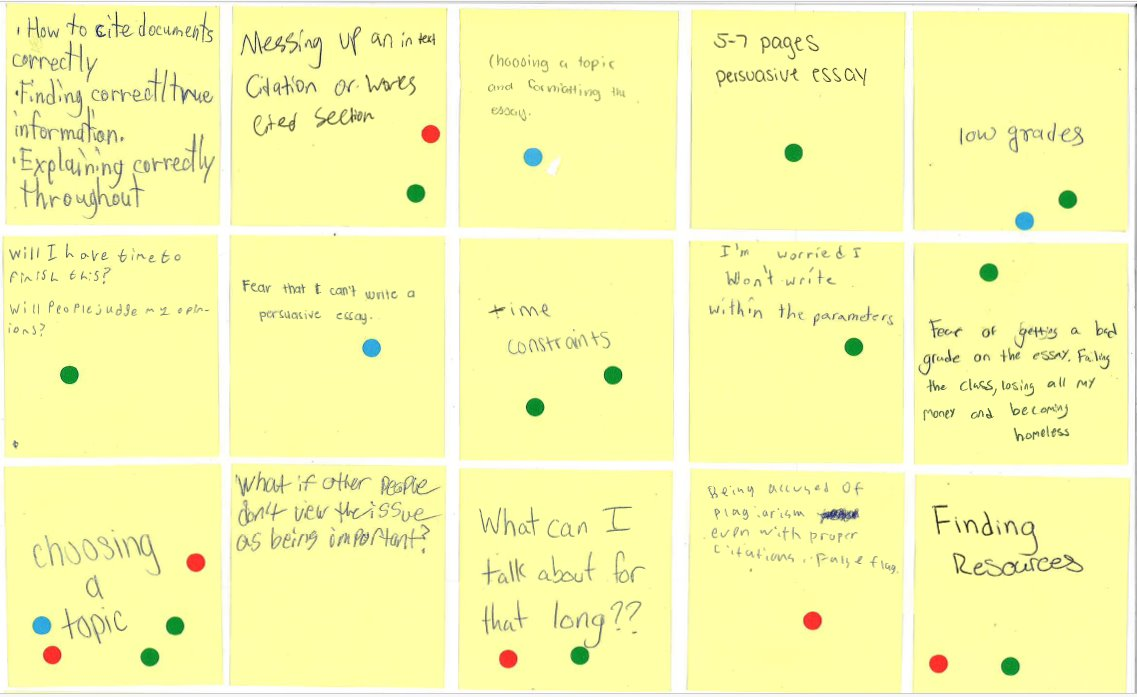 · How to cite documents
correctly
· Finding correct/true
information.
· Explaining correctly
throughout
Messing up an in text
Citation or Works
Cited Section
Choosing a topic
and formatting the
essay.
5-7 pages
persuasive essay
low grades
Will I have time to
finish this?
Will People judge my opin-
ions?
Fear that I can't write a
persuasive essay.
time
constraints
I'm worried I
Won't write
within the parameters
Fear of getting a bad
grade on the essay. Failing
the class, losing all my
money and becoming
homeless
choosing
a
topic
What if other people
don't view the issue
as being important?
What can I
talk about for
that long??
Being accused of
plagiarism
even with proper
Citations. False flag.
Finding
Resources